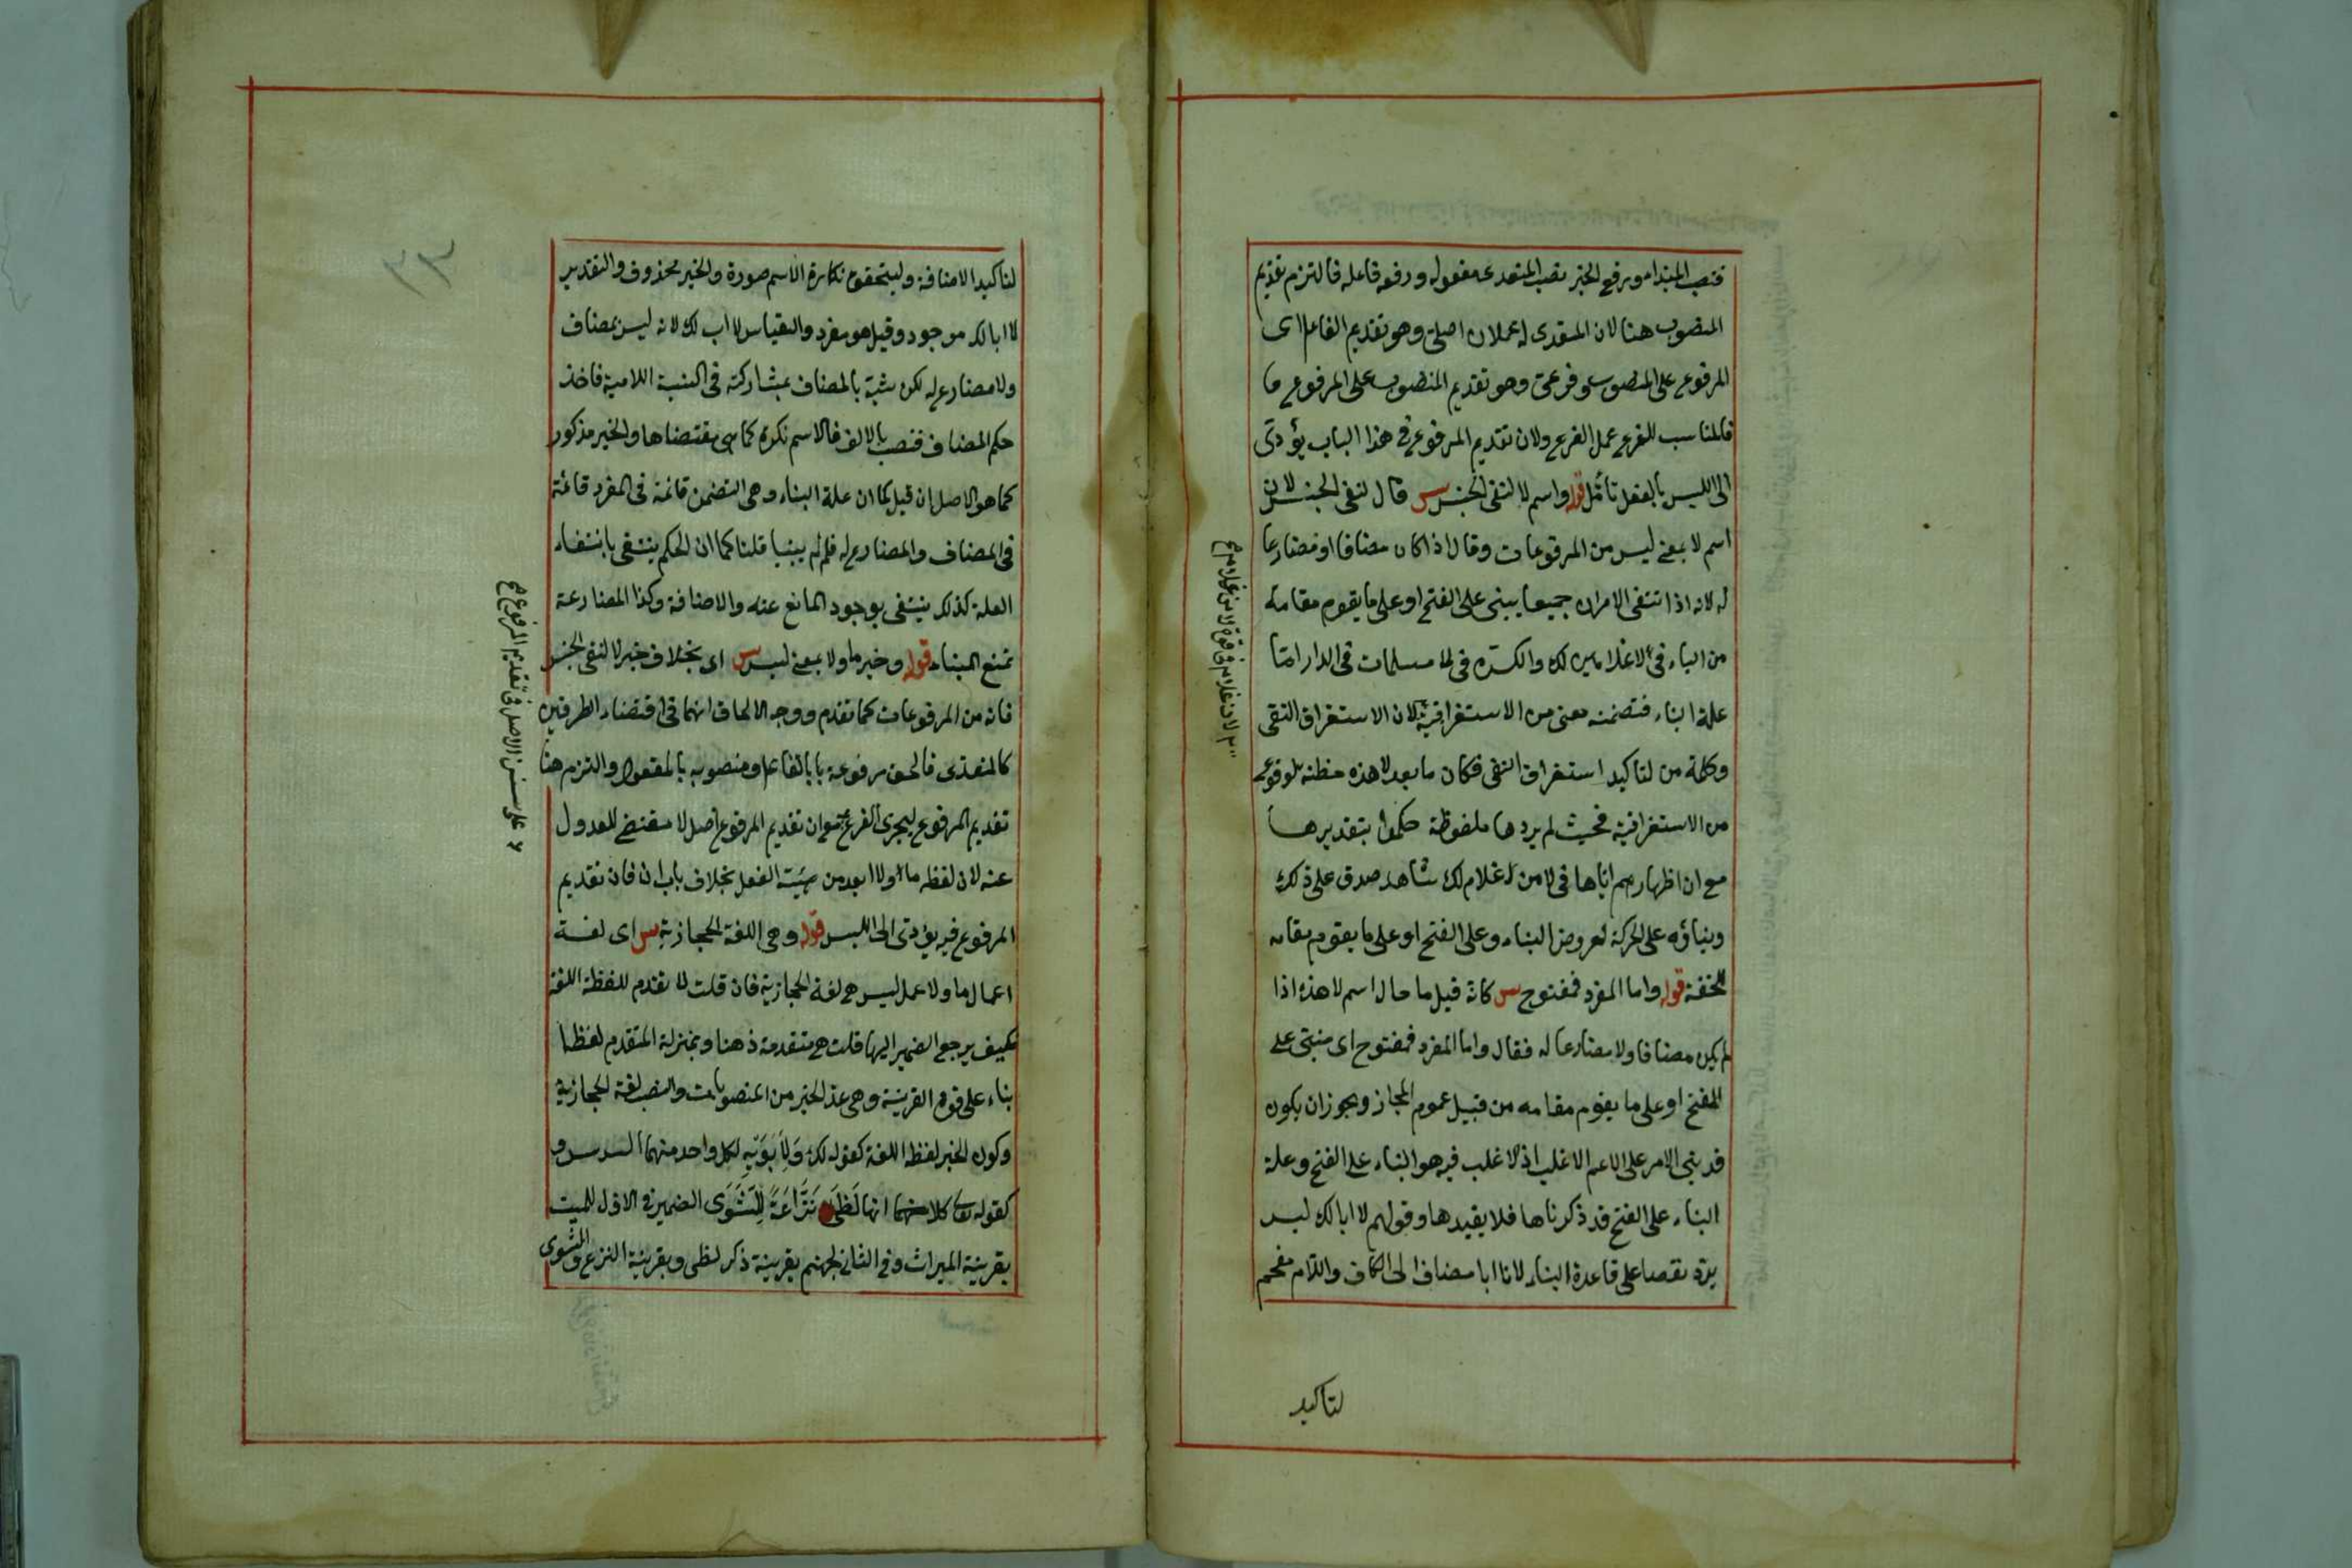 فنصب المبتدا ورفع الخبر نصب المتعدى مفعوله ورفعه فاعله فالتزم تقديم
المنصوب هنا لان المتعدى له عملان اصلى وهو تقديم الفاعل اى
المرفوع على المنصوب وفرعى وهو تقديم المنصوب على المرفوع
فالمناسب للفرع عمل الفرع ولان تقديم المرفوع فى هذا الباب يؤدى
الى اللبس بالفعل تأمل قوله واسم لا لنفى الجنس س قال لنفى الجنس لان
اسم لا بمعنى ليس من المرفوعات وقال اذا كان مضافا او مضارعا
له لانه اذا انتفى الامران جميعا يبنى على الفتح او على ما يقوم مقامه
من الياء فى لا غلامين لك والكسرة فى لا مسلمات فى الدار اما
علة البناء فتضمنه معنى من الاستغراقية لان الاستغراق النفى
وكلمة من لتاكيد استغراق النفى فكان ما بعد لا هذه مظنة لوقوع
من الاستغراقية فحيث لم يرد ها ملفوظة حكموا بتقديرها
مع ان اظهارهم اياها فى لا من غلام لك شاهد صدق على ذلك
وبناؤه على الحركة لعروض البناء وعلى الفتح او على ما يقوم مقامه
للخفة قوله واما المفرد فمفتوح س كانه قيل ما حال اسم لا هذه اذا
لم يكن مضافا ولا مضارعا له فقال واما المفرد فمفتوح اى مبنى على
الفتح او على ما يقوم مقامه من قبيل عموم المجاز ويجوز ان يكون
قد بنى الامر على الاعم الاغلب اذ الاغلب فيه هو البناء على الفتح وعلة
البناء على الفتح قد ذكرناها فلا يفيدها وقولهم لا ابا لك ليس
يرد نقضا على قاعدة البناء لانا ابا مضاف الى الكاف واللام مقحم
لتاكيد
٣٣
لتاكيد الاضافة وليتحقق نكارة الاسم صورة والخبر محذوف والتقدير
لا ابا لك موجود وقيل هو مفرد والقياس لا اب لك لانه ليس بمضاف
ولا مضارع له لكن شبه بالمضاف بمشاركته فى النسبة اللامية فاخذ
حكم المضاف فنصب بالالف فالاسم نكرة كما هى مقتضاها والخبر مذكور
كما هو الاصل ان قيل كما ان علة البناء وهى التضمن قائمة فى المفرد قائمة
فى المضاف والمضارع له فلم لم يبنيا قلنا كما ان الحكم ينتفى بانتفاء
العلة كذلك ينتفى بوجود المانع عنه والاضافة وكذا المضارعة
تمنع البناء قوله وخبر ما ولا بمعنى ليس س اى بخلاف خبر لا لنفى الجنس
فانه من المرفوعات كما تقدم ووجه الالحاق انهما فى اقتضاء الطرفين
كالمتعدى فالحق مرفوعه بالفاعل ومنصوبه بالمفعول والتزم هنا
تقديم المرفوع ليجرى الفرع مع ان تقديم المرفوع اصل لا مقتضى للعدول
عنه لان لفظه ما ولا ابعد من هيئت الفعل بخلاف باب ان فان تقديم
المرفوع فيه يؤدى الى اللبس قوله وهى اللغة الحجازية س اى لغة
اعمال ما ولا عمل ليس هى لغة الحجازية فان قلت لا تقدم للفظة اللغة
فكيف يرجع الضمير اليها قلت هى متقدمة ذهنا وبمنزلة المتقدم لفظا
بناء على قوة القرينة وهى عد الخبر من المنصوبات والنصب لغة الحجازية
وكون الخبر لفظ اللغة كقوله لك وَلاَبَوَيْهِ لكل واحد منهما السدس و
كقوله تعالى كلا انها لَظَى نَزَّاعَةً لِلشَّوَى الضمير فى الاول للميت
بقرينة الميراث وفى الثانى لجهنم بقرينة ذكر لظى وبقرينة النزع والشوى
على سنن الاصل فى تقديم المرفوع